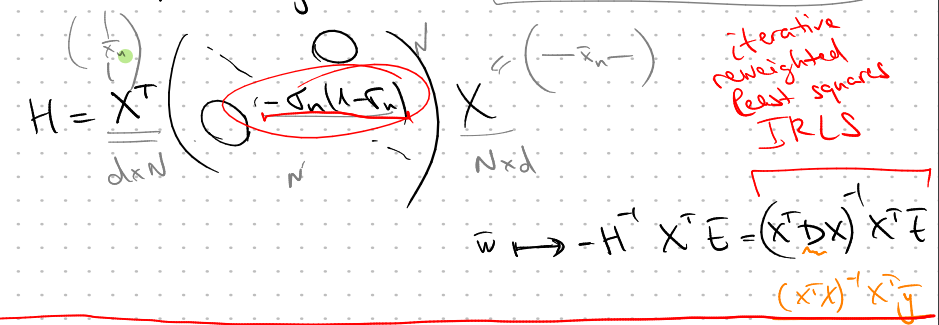 (x̄ₙ)
H = Xᵀ ( -σₙ(1-σₙ) ) X
(— x̄ₙ —)
d×N
N
N
N×d
iterative
reweighted
least squares
IRLS
w̄ ↦ -H⁻¹ Xᵀ Ē = (XᵀDX)⁻¹ Xᵀ Ē
(XᵀX)⁻¹ Xᵀ ȳ